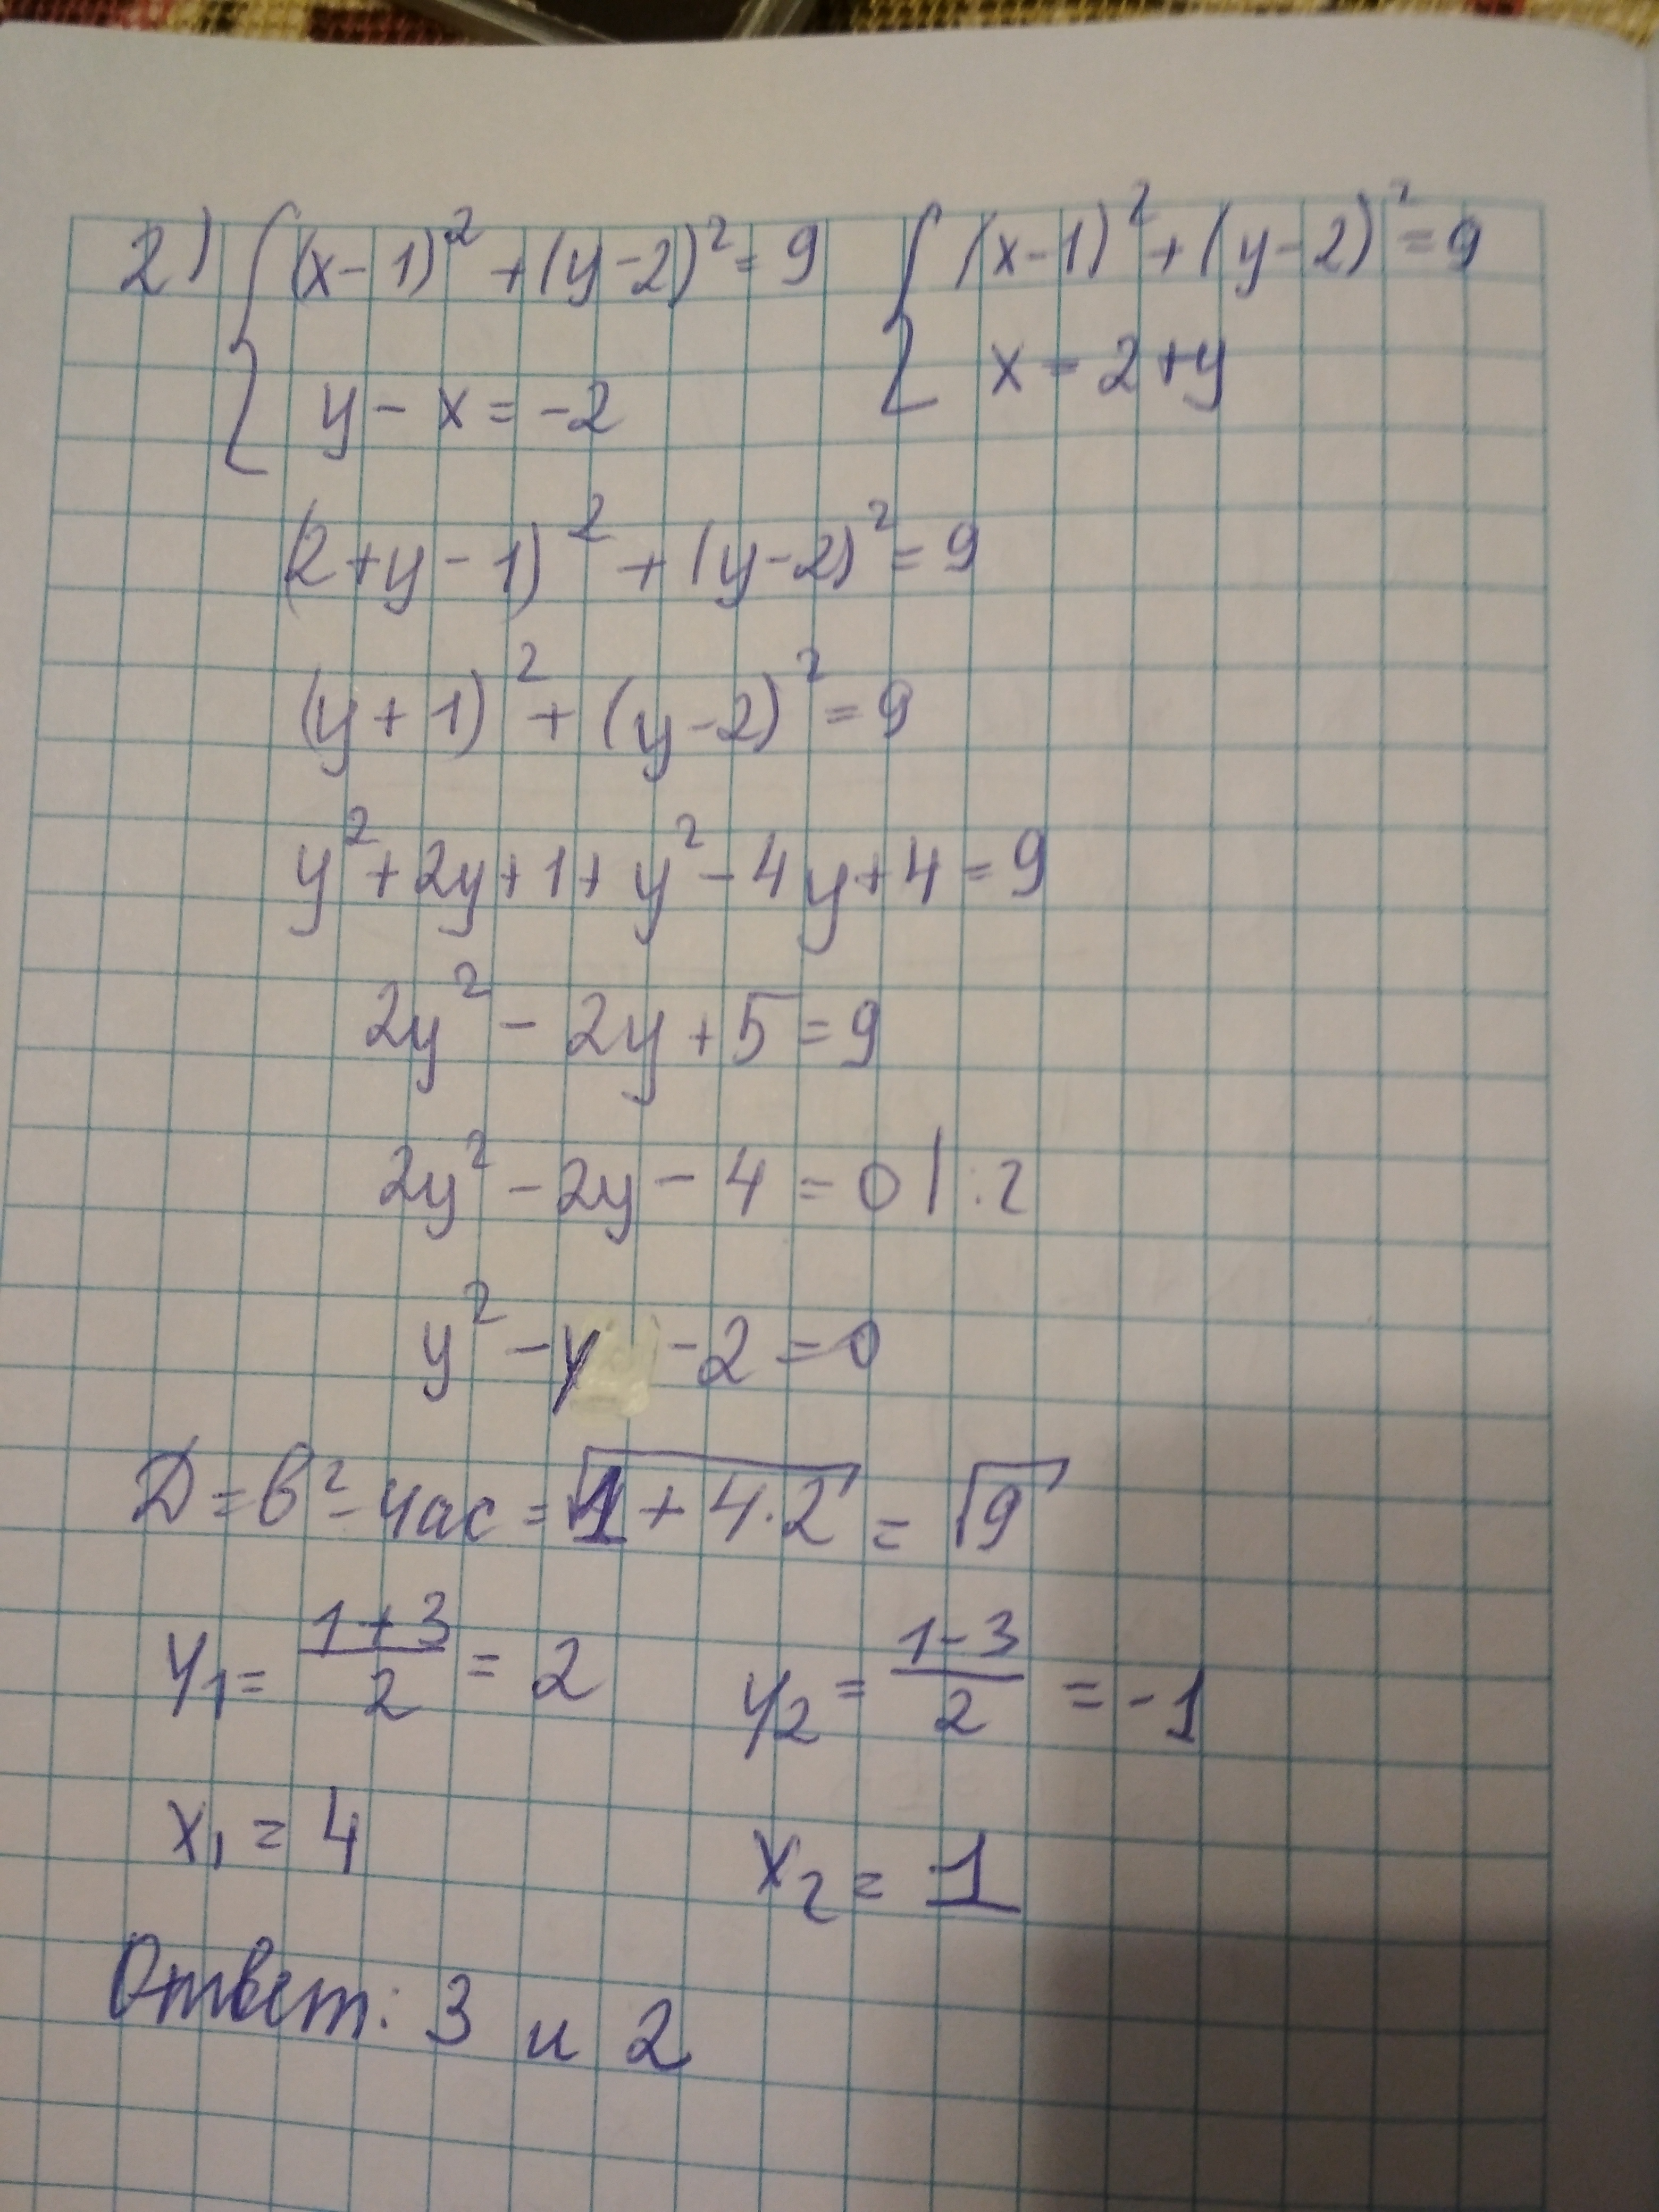 2) { (x-1)² + (y-2)² = 9 { (x-1)² + (y-2)² = 9
y - x = -2 x = 2 + y
(2+y-1)² + (y-2)² = 9
(y+1)² + (y-2)² = 9
y² + 2y + 1 + y² - 4y + 4 = 9
2y² - 2y + 5 = 9
2y² - 2y - 4 = 0 | :2
y² - y - 2 = 0
D = b² - 4ac = √1 + 4·2 = √9
y₁ = (1+3)/2 = 2 y₂ = (1-3)/2 = -1
x₁ = 4 x₂ = 1
Ответ: 3 и 2